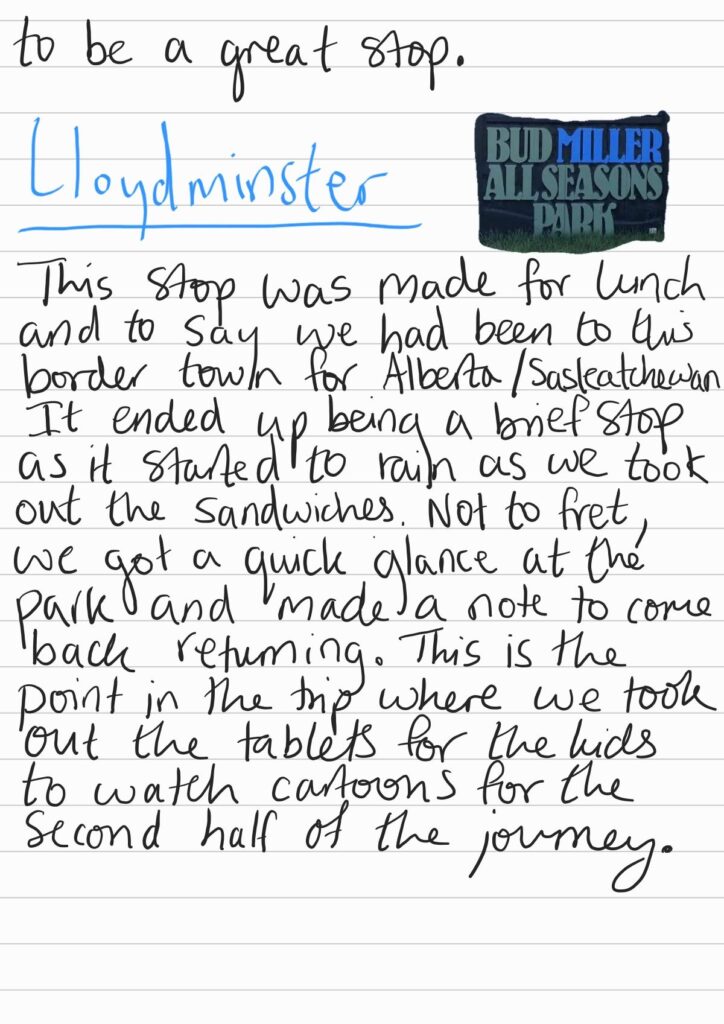 to be a great stop.
Lloydminster
BUD MILLER
ALL SEASONS
PARK
This stop was made for lunch
and to say we had been to this
border town for Alberta/Saskatchewan
It ended up being a brief stop
as it started to rain as we took
out the sandwiches. Not to fret,
we got a quick glance at the
park and made a note to come
back returning. This is the
point in the trip where we took
out the tablets for the kids
to watch cartoons for the
second half of the journey.